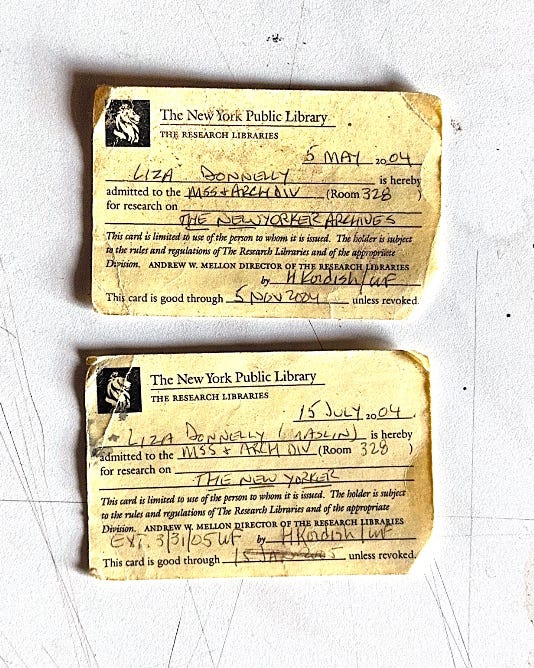 The New York Public Library
THE RESEARCH LIBRARIES
5 MAY 2004
LIZA DONNELLY is hereby
admitted to the MSS + ARCH DIV (Room 328 )
for research on
THE NEW YORKER ARCHIVES
This card is limited to use of the person to whom it is issued. The holder is subject
to the rules and regulations of The Research Libraries and of the appropriate
Division. ANDREW W. MELLON DIRECTOR OF THE RESEARCH LIBRARIES
by H Kordish / WF
This card is good through 5 NOV 2004 unless revoked.
The New York Public Library
THE RESEARCH LIBRARIES
15 JULY 2004.
LIZA DONNELLY (MASLIN) is hereby
admitted to the MSS + ARCH DIV (Room 328 )
for research on
THE NEW YORKER
This card is limited to use of the person to whom it is issued. The holder is subject
to the rules and regulations of The Research Libraries and of the appropriate
Division. ANDREW W. MELLON DIRECTOR OF THE RESEARCH LIBRARIES
EXT. 3/31/05 WF by H Kordish / WF
This card is good through 15 JAN 2005 unless revoked.